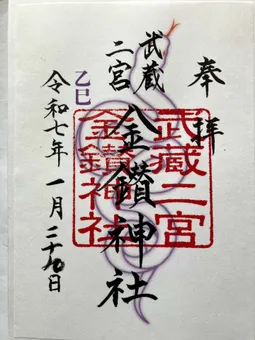 奉拝
武蔵
二宮
金鑚神社
乙巳
令和七年一月二十九日
武藏二宮
金鑚神社